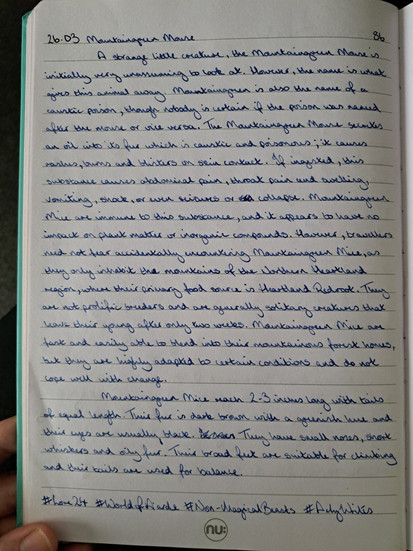 26.03 Mountaingreen Mouse 86
A strange little creature, the Mountaingreen Mouse is
initially very unassuming to look at. However, the name is what
gives this animal away. Mountaingreen is also the name of a
caustic poison, though nobody is certain if the poison was named
after the mouse or vice versa. The Mountaingreen Mouse secretes
an oil into its fur which is caustic and poisonous; it causes
rashes, burns and blisters on skin contact. If ingested, this
substance causes abdominal pain, throat pain and swelling,
vomiting, shock, or even seizures or collapse. Mountaingreen
Mice are immune to this substance, and it appears to have no
impact on plant matter or inorganic compounds. However, travellers
need not fear accidentally encountering Mountaingreen Mice, as
they only inhabit the mountains of the Northern Heartland
region, where their primary food source is Heartland Redroot. They
are not prolific breeders and are generally solitary creatures that
leave their young after only two weeks. Mountaingreen Mice are
fast and easily able to blend into their mountainous forest homes,
but they are highly adapted to certain conditions and do not
cope well with change.
Mountaingreen Mice reach 2-3 inches long with tails
of equal length. Their fur is dark brown with a greenish hue and
their eyes are usually black. They have small noses, short
whiskers and oily fur. Their broad feet are suitable for climbing
and their tails are used for balance.
#Lore24 #Non-MagicalBeasts
nu: